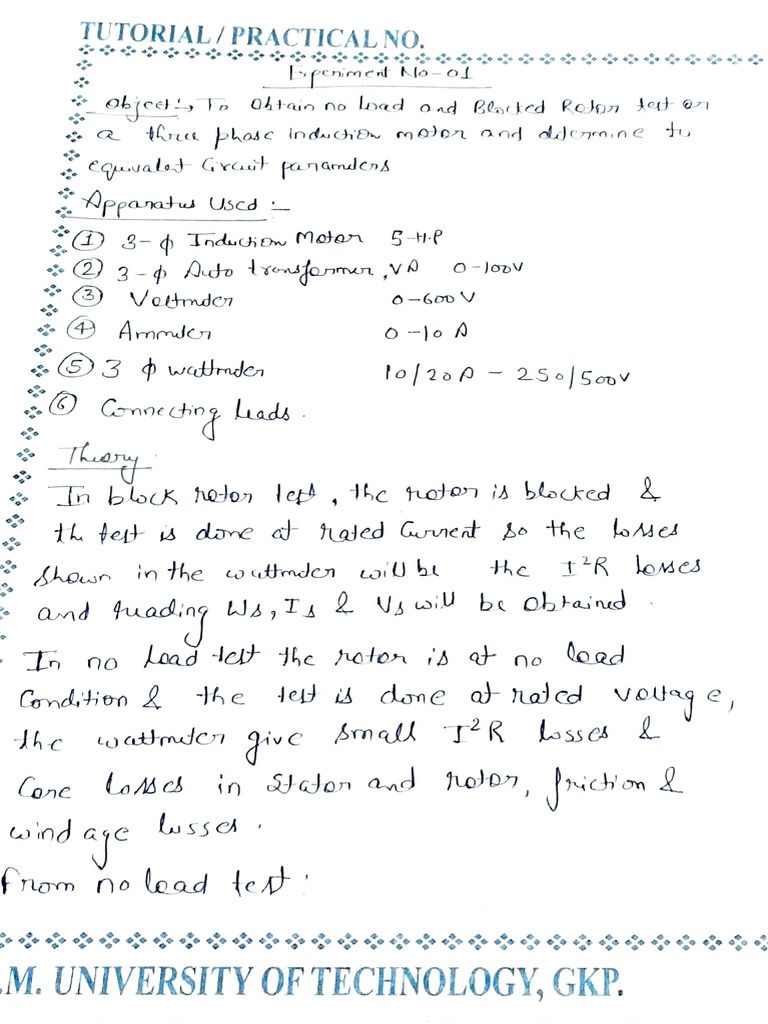 TUTORIAL / PRACTICAL NO.
Experiment No-01
Object:- To Obtain no load and Blocked Rotor test on
a three phase induction motor and determine to
equivalent Circuit parameters
Apparatus Used :-
① 3-φ Induction Motor 5-H.P
② 3-φ Auto transformer, VA 0-100V
③ Voltmeter 0-600 V
④ Ammeter 0-10 A
⑤ 3 φ wattmeter 10/20A - 250/500V
⑥ Connecting leads.
Theory
In block rotor test, the rotor is blocked &
the test is done at rated Current so the losses
shown in the wattmeter will be the I²R losses
and reading Ws, Is & Vs will be obtained.
In no load test the rotor is at no load
Condition & the test is done at rated voltage,
the wattmeter give small I²R losses &
Core losses in stator and rotor, friction &
wind age losses.
from no load test:
.M. UNIVERSITY OF TECHNOLOGY, GKP.